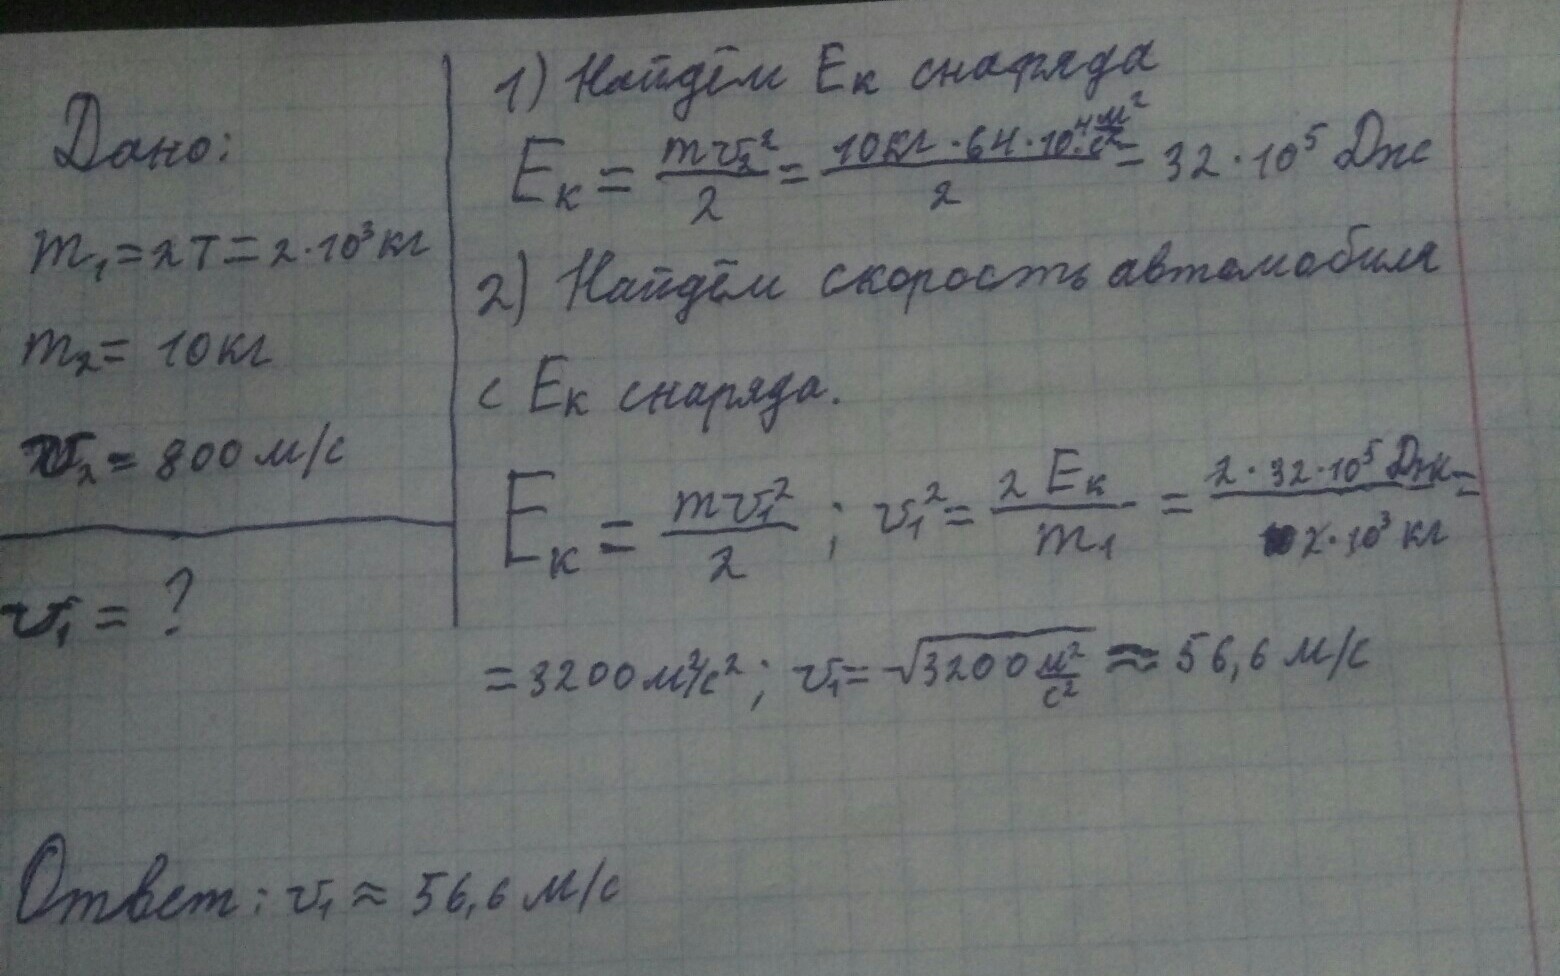 Дано:
m₁ = 2 т = 2·10³ кг
m₂ = 10 кг
v₂ = 800 м/с
v₁ = ?
1) Найдём Eк снаряда
Eк = mv₂²/2 = 10кг·64·10⁴ м²/с²/2 = 32·10⁵ Дж
2) Найдём скорость автомобиля
с Eк снаряда.
Eк = mv₁²/2 ; v₁² = 2 Eк/m₁ = 2·32·10⁵ Дж/2·10³ кг =
= 3200 м²/с² ; v₁ = √3200 м²/с² ≈ 56,6 м/с
Ответ: v₁ ≈ 56,6 м/с